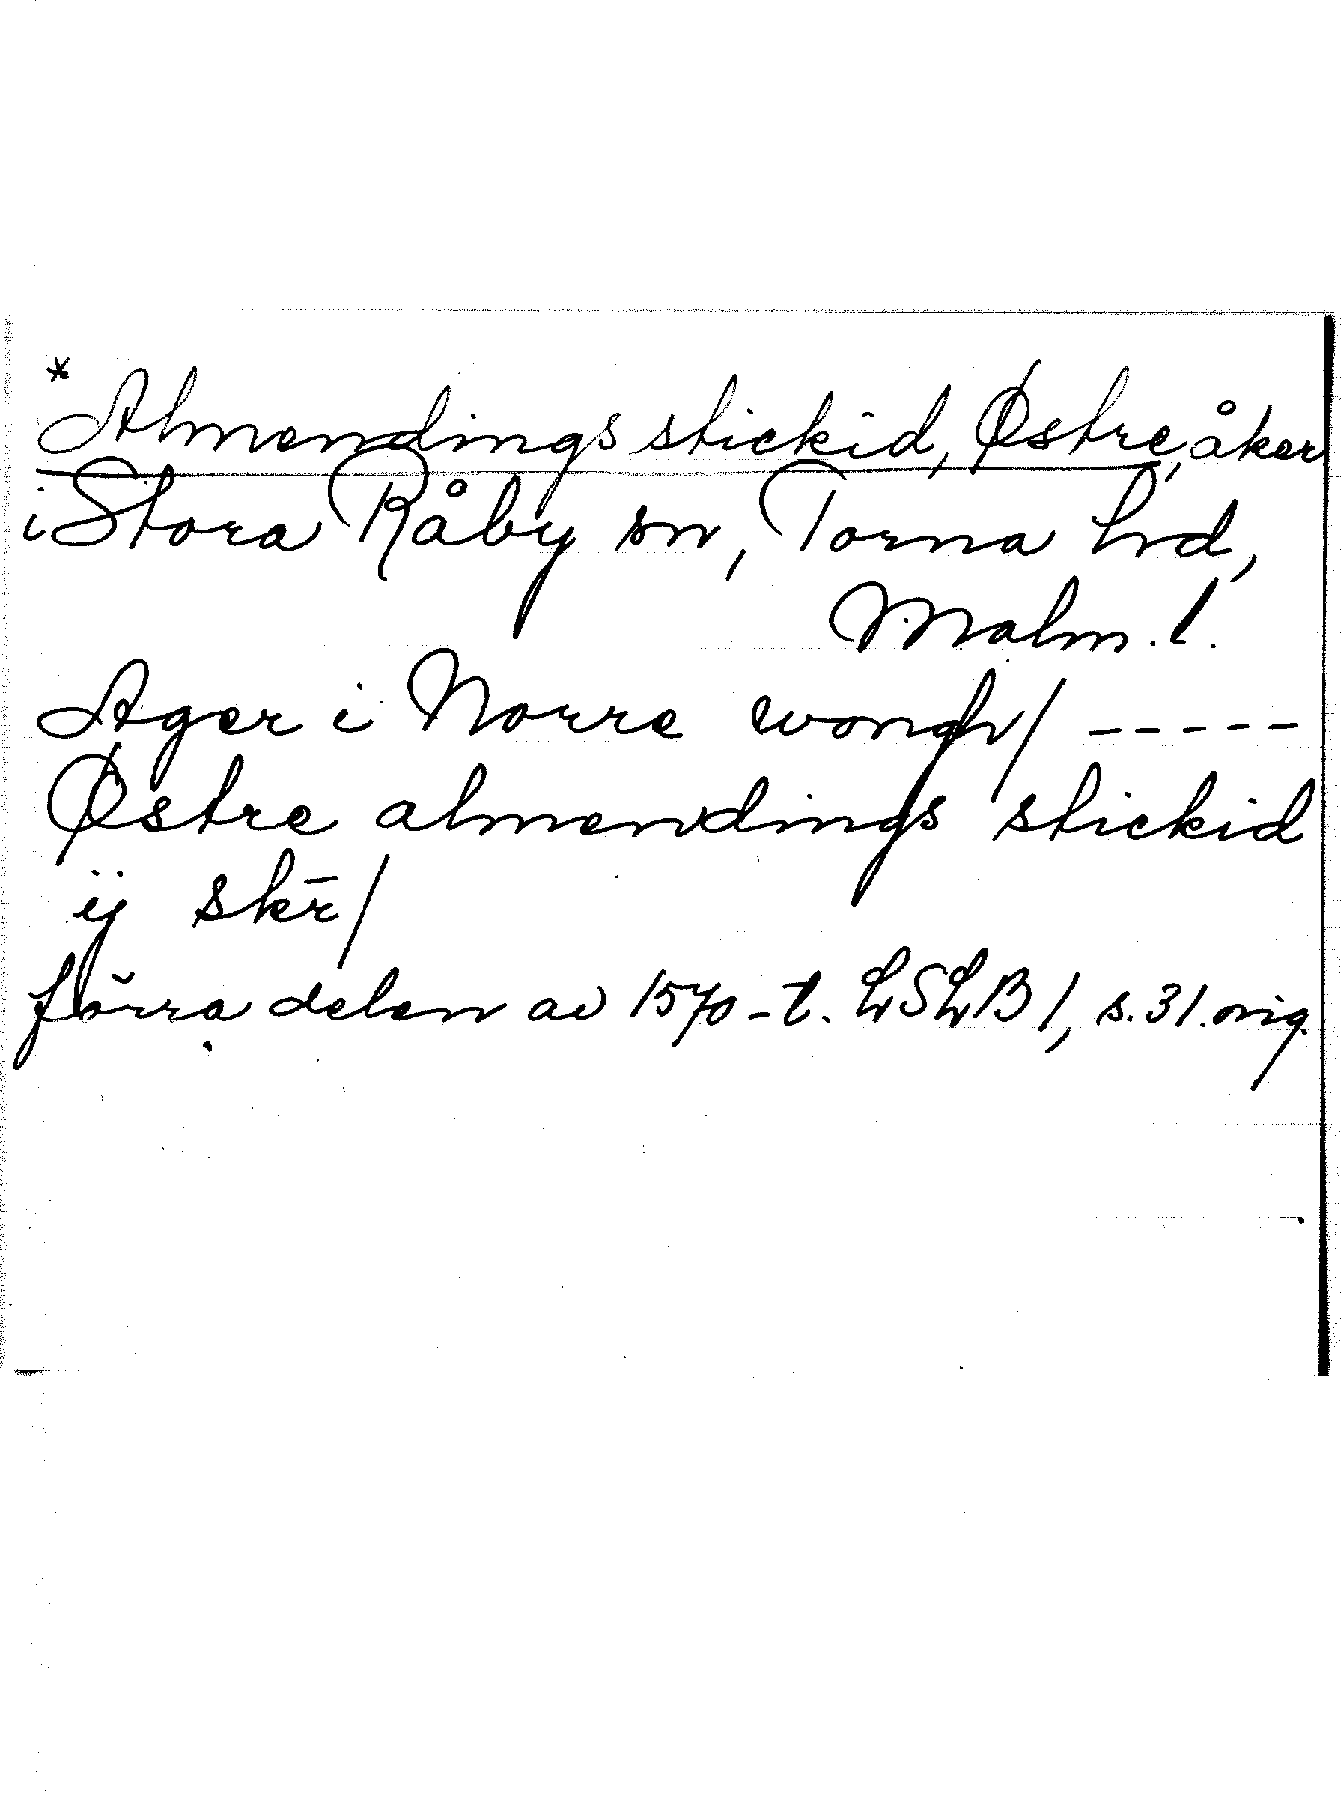 *Almendings stickid, Østre, åker
i Stora Råby sn, Torna hrd,
Malm. l.
Ager i Norre wongh/ -----
Østre almendings stickid
ij skr̄/
förra delen av 1570-t. LSLB 1, s. 31. orig.